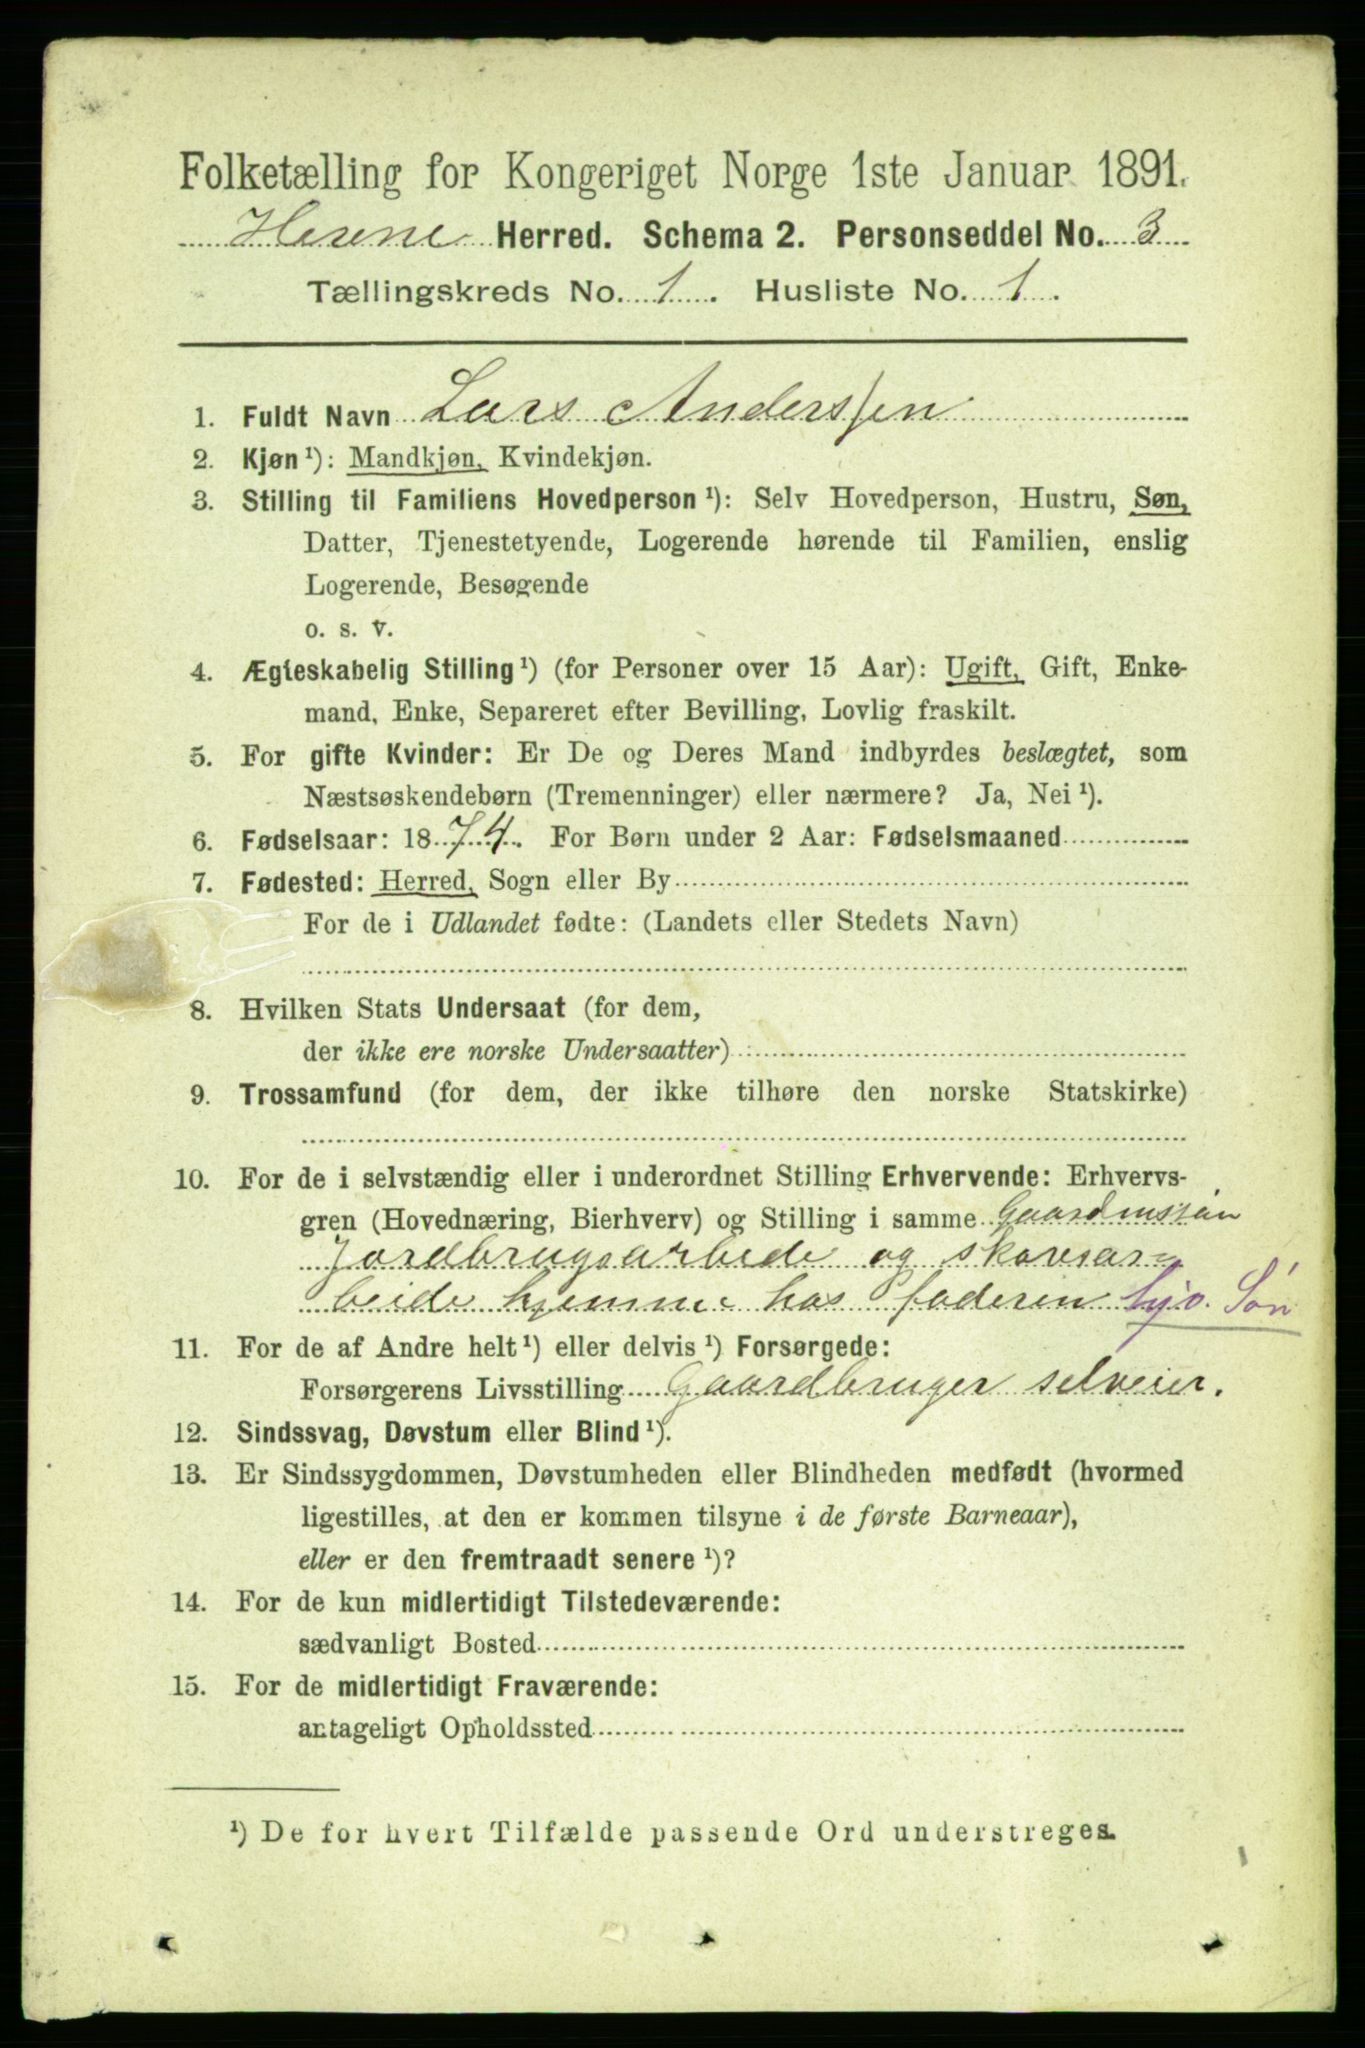 Folketælling for Kongeriget Norge 1ste Januar 1891.
Herene Herred. Schema 2. Personseddel No. 3
Tællingskreds No. 1. Husliste No. 1.
1. Fuldt Navn Lars Anderssen
2. Kjøn¹): Mandkjøn, Kvindekjøn.
3. Stilling til Familiens Hovedperson¹): Selv Hovedperson, Hustru, Søn,
Datter, Tjenestetyende, Logerende hørende til Familien, enslig
Logerende, Besøgende
o. s. v.
4. Ægteskabelig Stilling¹) (for Personer over 15 Aar): Ugift, Gift, Enke-
mand, Enke, Separeret efter Bevilling, Lovlig fraskilt.
5. For gifte Kvinder: Er De og Deres Mand indbyrdes beslægtet, som
Næstsøskendebørn (Tremenninger) eller nærmere? Ja, Nei¹).
6. Fødselsaar: 1874. For Børn under 2 Aar: Fødselsmaaned
7. Fødested: Herred, Sogn eller By
For de i Udlandet fødte: (Landets eller Stedets Navn)
8. Hvilken Stats Undersaat (for dem,
der ikke ere norske Undersaatter)
9. Trossamfund (for dem, der ikke tilhøre den norske Statskirke)
10. For de i selvstændig eller i underordnet Stilling Erhvervende: Erhvervs-
gren (Hovednæring, Bierhverv) og Stilling i samme
Jordbrugsarbeide og skovsar-
beide hjemme hos faderen hjv. Søn
11. For de af Andre helt¹) eller delvis¹) Forsørgede:
Forsørgerens Livsstilling Gaardbruger selveier.
12. Sindssvag, Døvstum eller Blind¹).
13. Er Sindssygdommen, Døvstumheden eller Blindheden medfødt (hvormed
ligestilles, at den er kommen tilsyne i de første Barneaar),
eller er den fremtraadt senere¹)?
14. For de kun midlertidigt Tilstedeværende:
sædvanligt Bosted
15. For de midlertidigt Fraværende:
antageligt Opholdssted
¹) De for hvert Tilfælde passende Ord understreges.